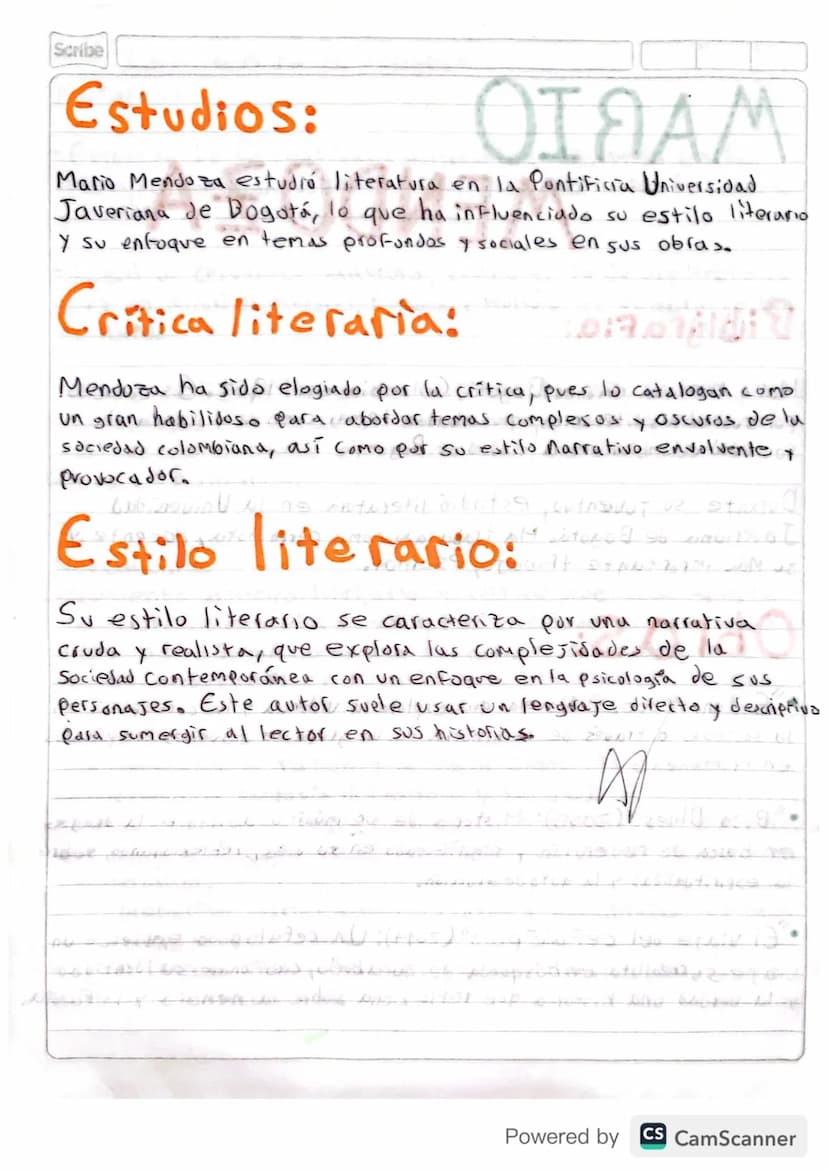 Scribe
Estudios:
Mario Mendoza estudió literatura en la Pontificia Universidad
Javeriana de Bogotá, lo que ha influenciado su estilo literario
y su enfoque en temas profundos y sociales en sus obras.
Crítica literaria:
Mendoza ha sido elogiado por la crítica, pues lo catalogan como
un gran habilidoso para abordar temas complejos y oscuros de la
sociedad colombiana, así como por su estilo narrativo envolvente y
provocador.
Estilo literario:
Su estilo literario se caracteriza por una narrativa
cruda y realista, que explora las complejidades de la
sociedad contemporánea con un enfoque en la psicología de sus
personajes. Este autor suele usar un lenguaje directo y descriptivo
para sumergir al lector en sus historias.
Powered by CS CamScanner